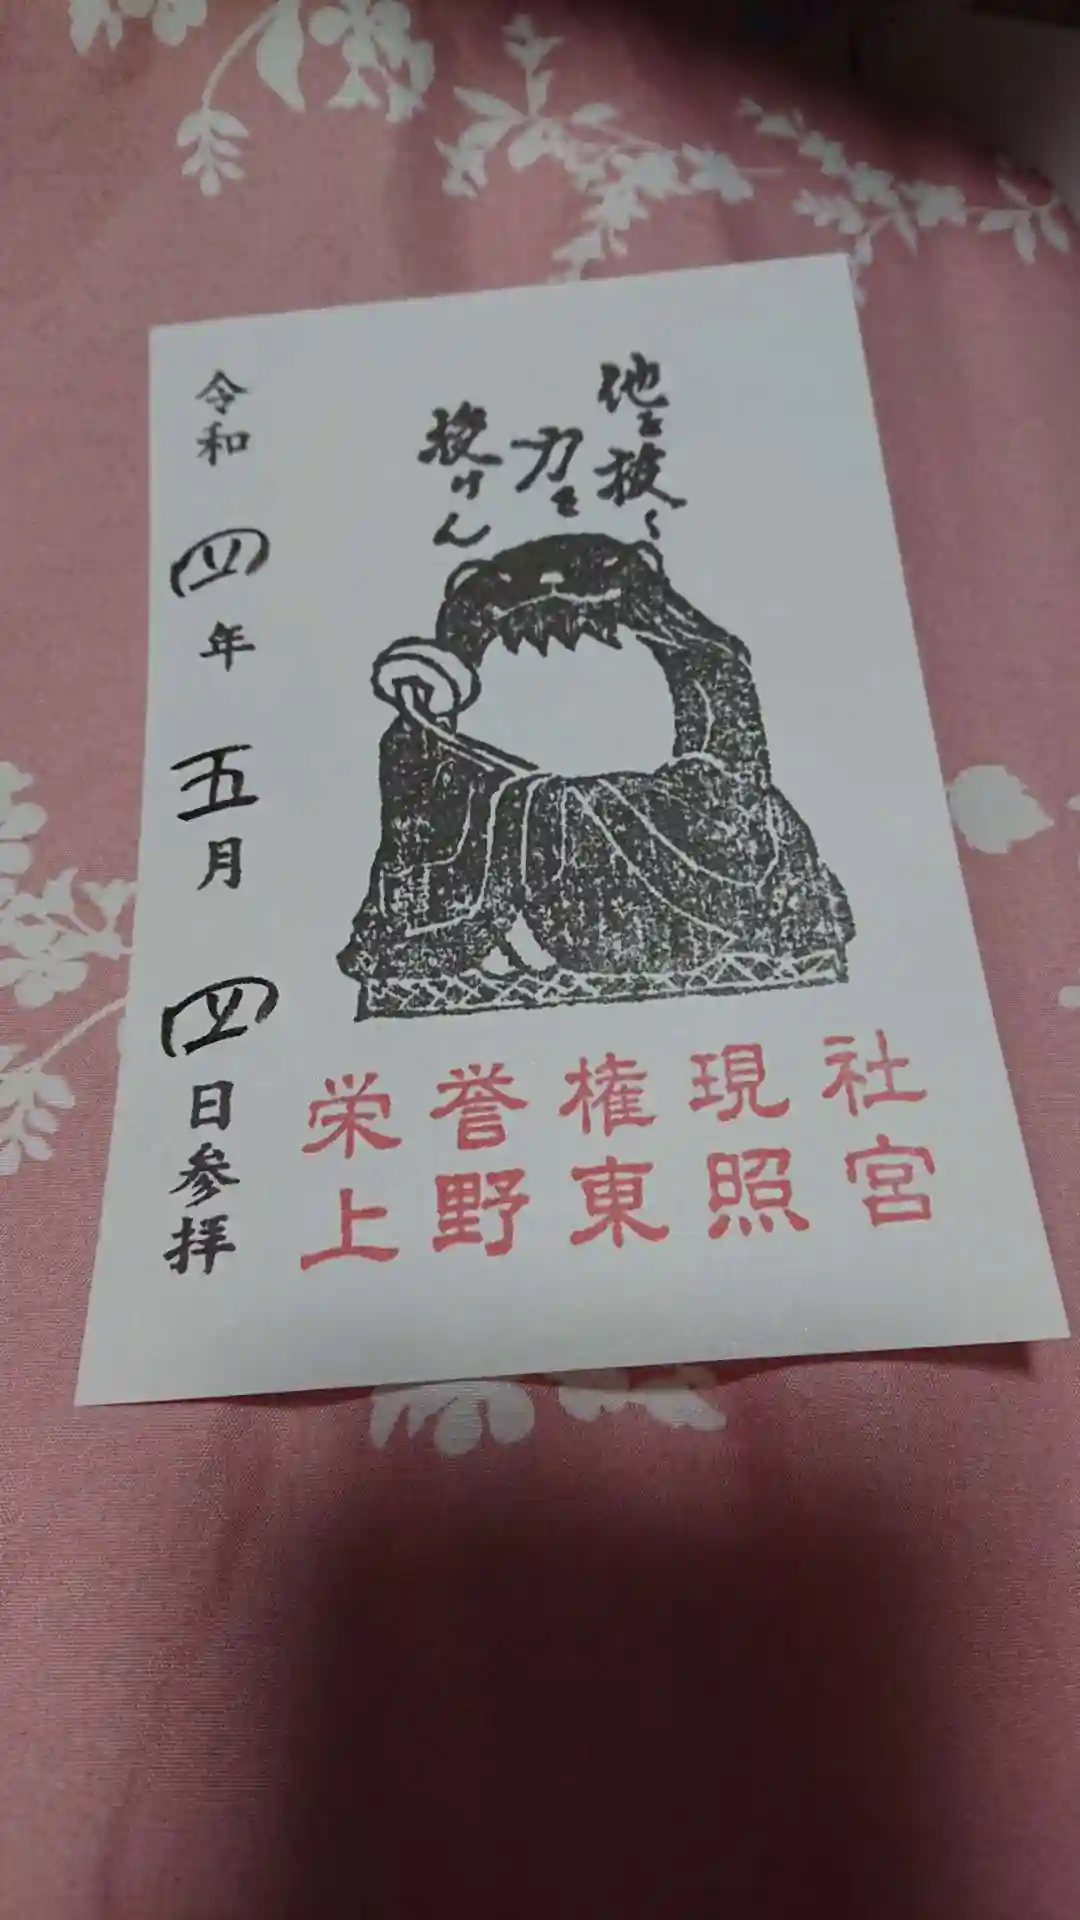 他を抜く
力を
授けん
栄誉権現社
上野東照宮
令和四年五月四日参拝